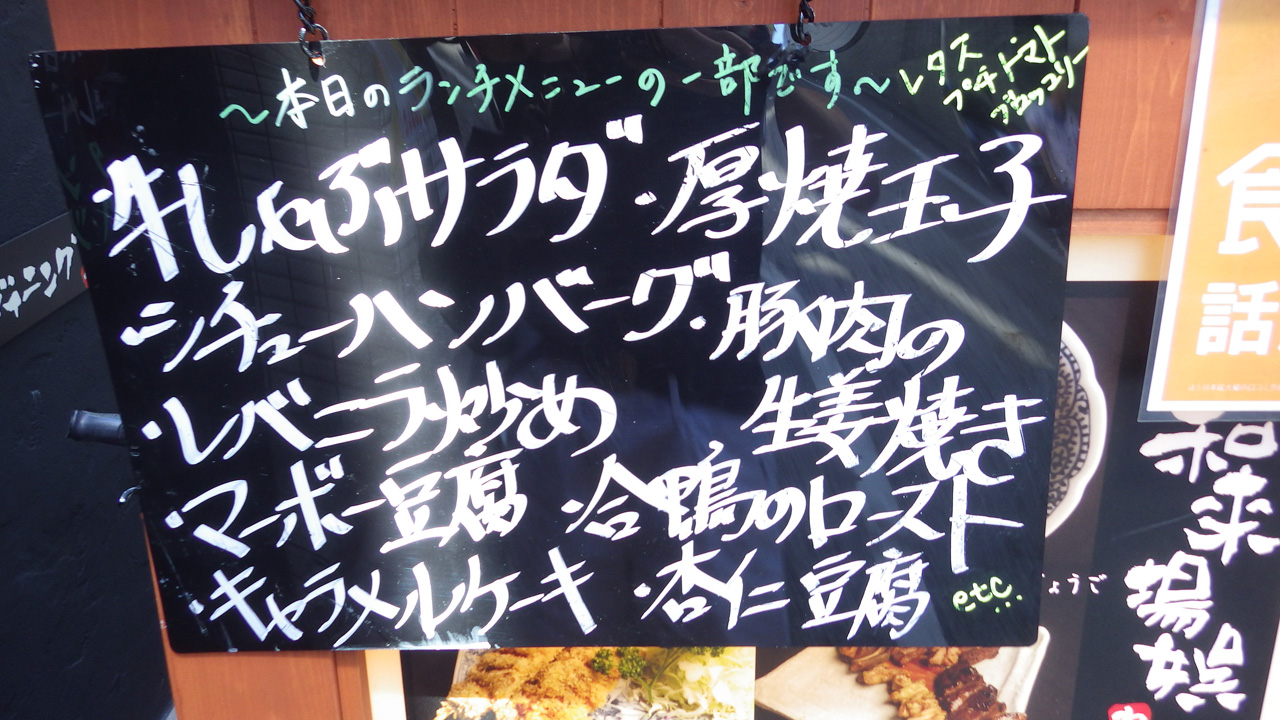 ～本日のランチメニューの一部です～
レタス
プチトマト
ブロッコリー
・牛しゃぶサラダ ・厚焼玉子
・シチューハンバーグ ・豚肉の
生姜焼き
・レバニラ炒め
・マーボー豆腐 ・合鴨のロースト
・キャラメルケーキ ・杏仁豆腐 etc...
食
話
ダイニング
和来
場娯
ょうご